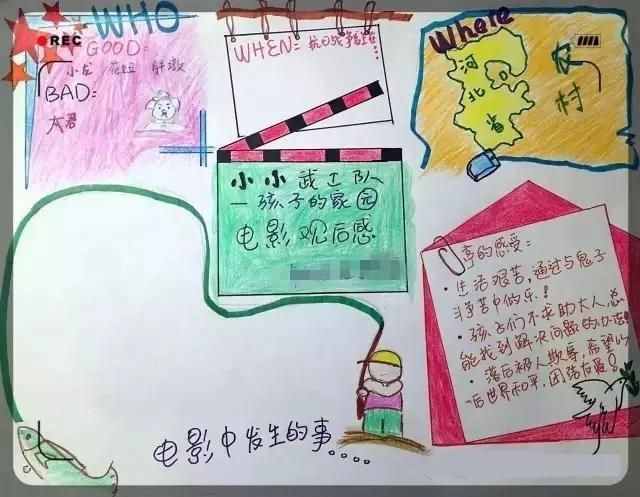 REC
WHO
GOOD:
小龙 花妞 胖墩
BAD:
太君
WHEN: 抗日战争时期...
Where
河
北
省
农
村
小小武工队
—孩子的家园
电影观后感
事的感受:
·生活艰苦,通过与鬼子
斗争苦中作乐!
·孩子们不求助大人,总
能找到解决问题的办法!
·落后被人欺辱,希望以
后世界和平,团结友爱!
电影中发生的事....